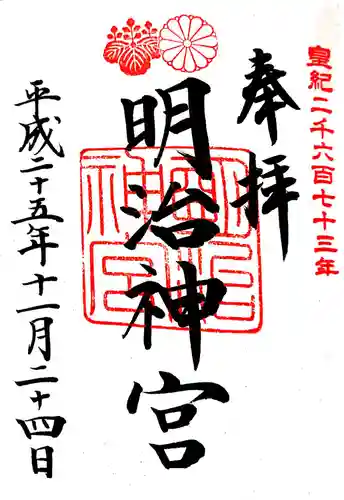 皇紀二千六百七十三年
奉拝
明治神宮
平成二十五年十一月二十四日
明治神宮